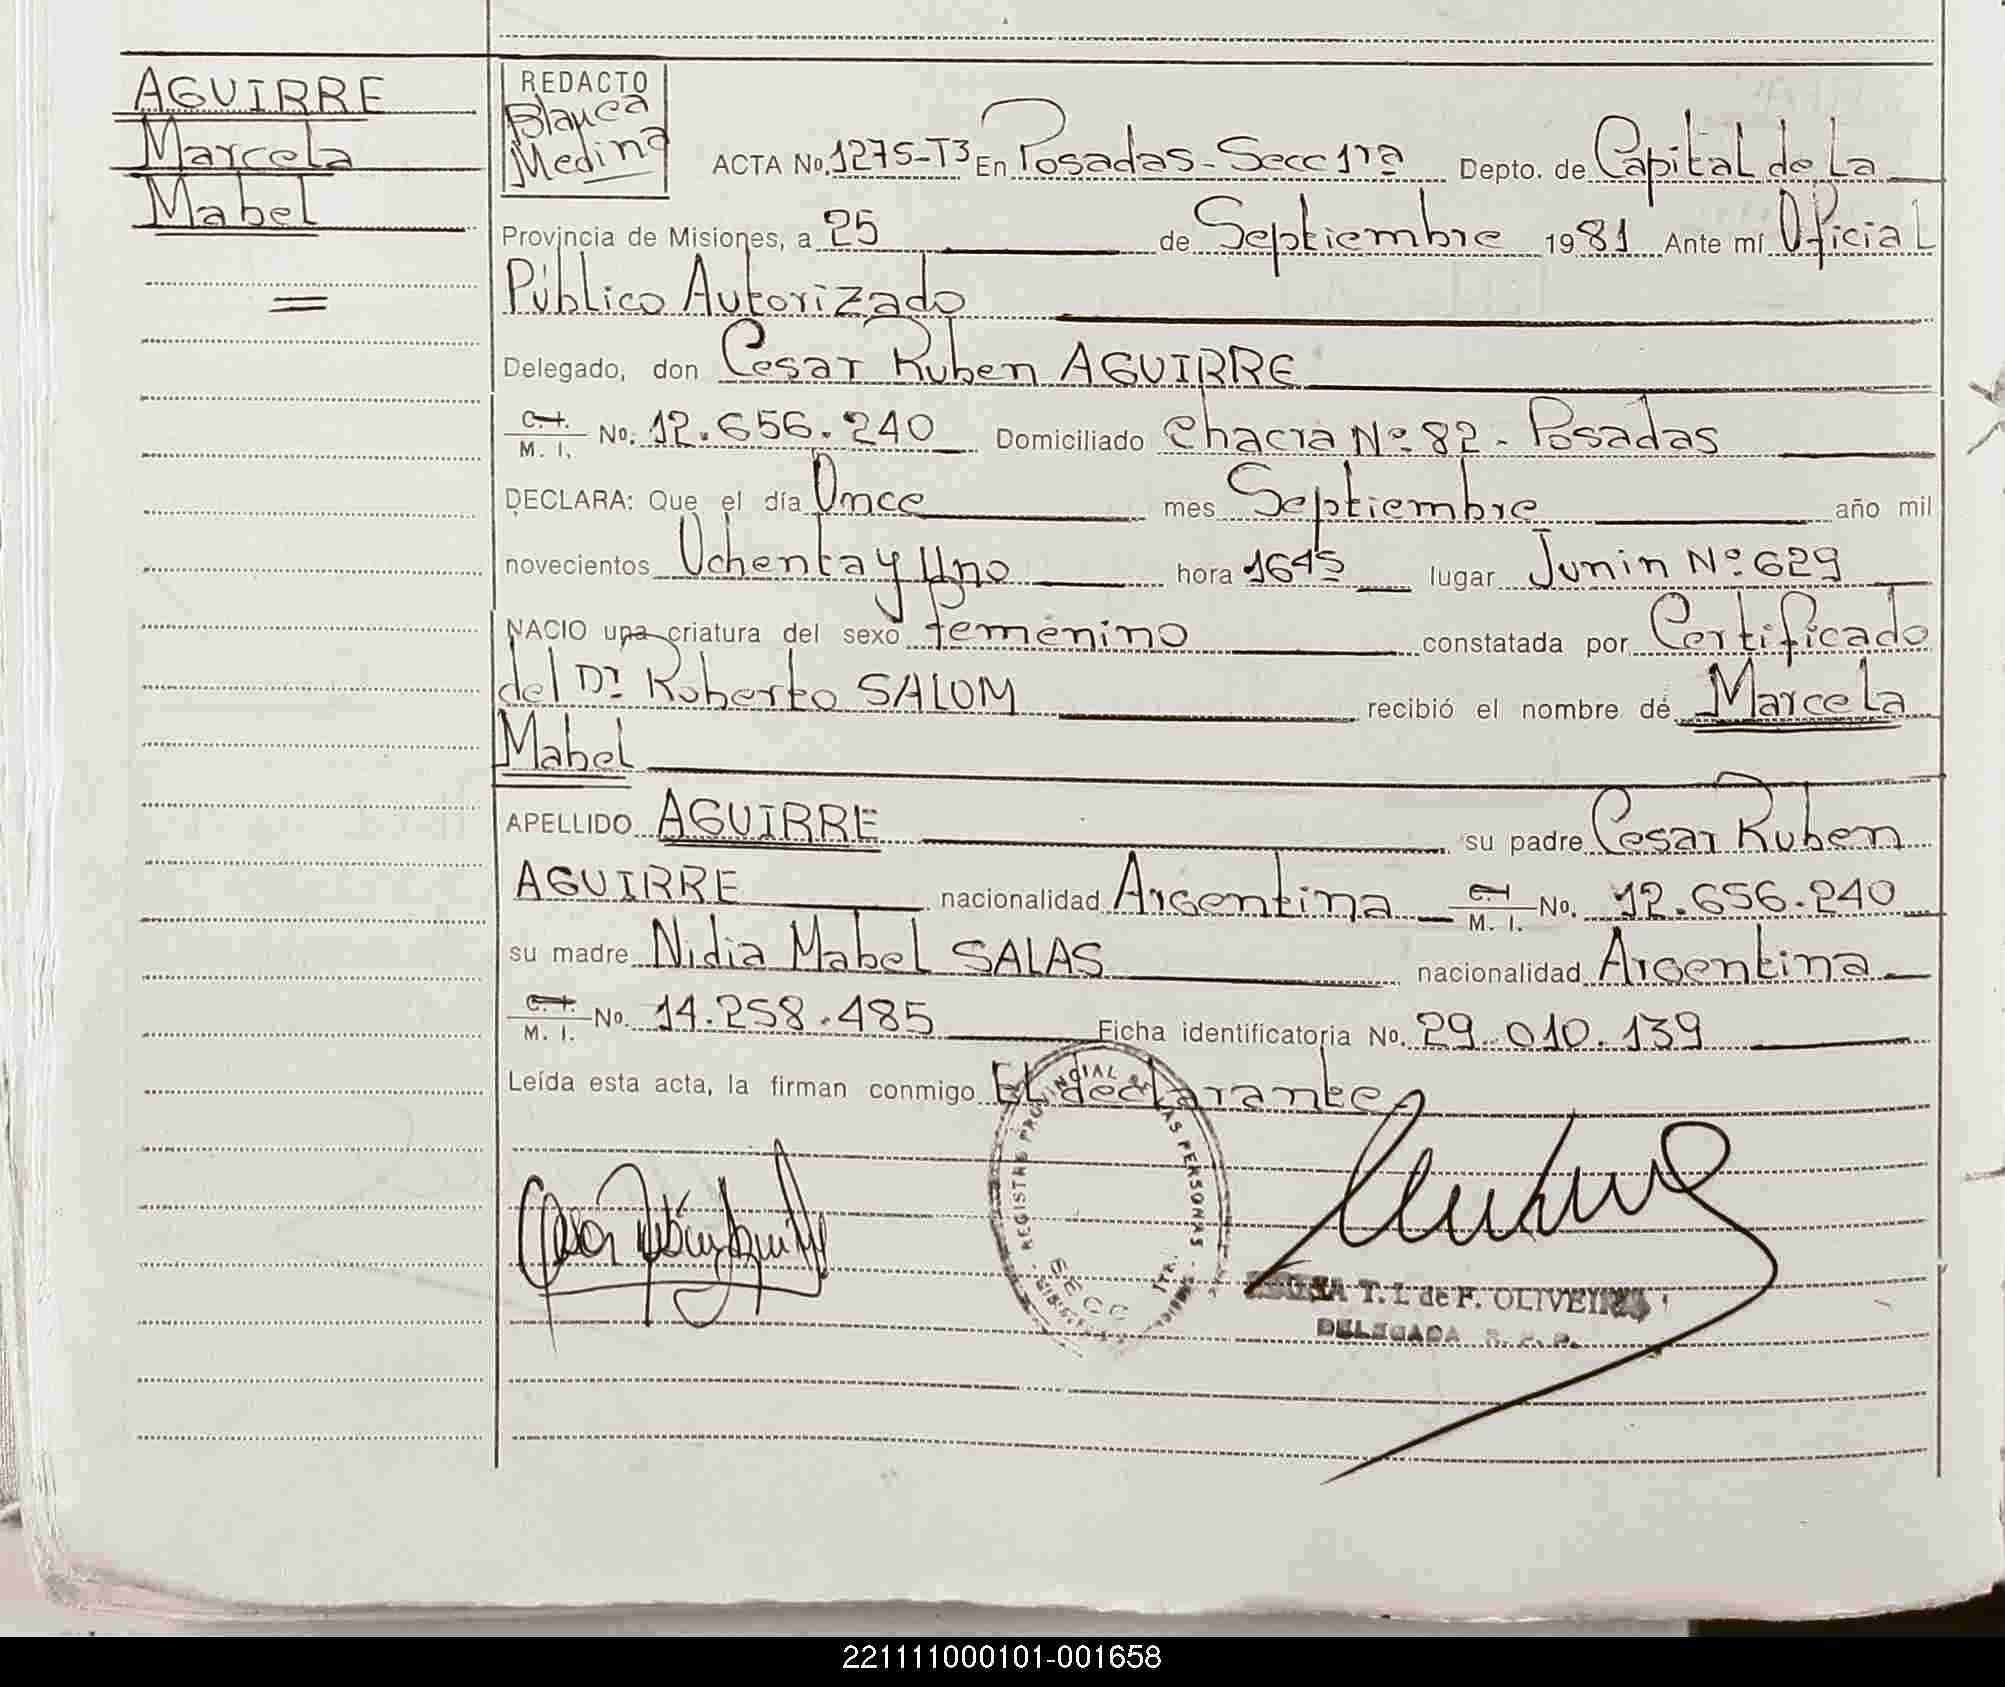 AGUIRRE
Marcela
Mabel
REDACTO
Blanca
Medina
ACTA No. 1275-T3 En Posadas - Secc 1ra Depto. de Capital de La
Provincia de Misiones, a 25 de Septiembre 1981 Ante mí Oficial
Público Autorizado
Delegado, don Cesar Ruben AGUIRRE
C. I.
M. I. No. 12.656.240 Domiciliado Chacra Nº 82 - Posadas
DECLARA: Que el día Once mes Septiembre año mil
novecientos Ochenta y Uno hora 1645 lugar Junin Nº 629
NACIO una criatura del sexo femenino constatada por Certificado
del Dr Roberto SALOM recibió el nombre de Marcela
Mabel
APELLIDO AGUIRRE su padre Cesar Ruben
AGUIRRE nacionalidad Argentina C. I.
M. I. No. 12.656.240
su madre Nidia Mabel SALAS nacionalidad Argentina
C. I.
M. I. No. 14.258.485 Ficha identificatoria No. 29.010.139
Leída esta acta, la firman conmigo El declarante
REGISTRO PROVINCIAL DE LAS PERSONAS
SECC 1ra.
T. I. de F. OLIVEIRA
DELEGADA R. P. P.
221111000101-001658